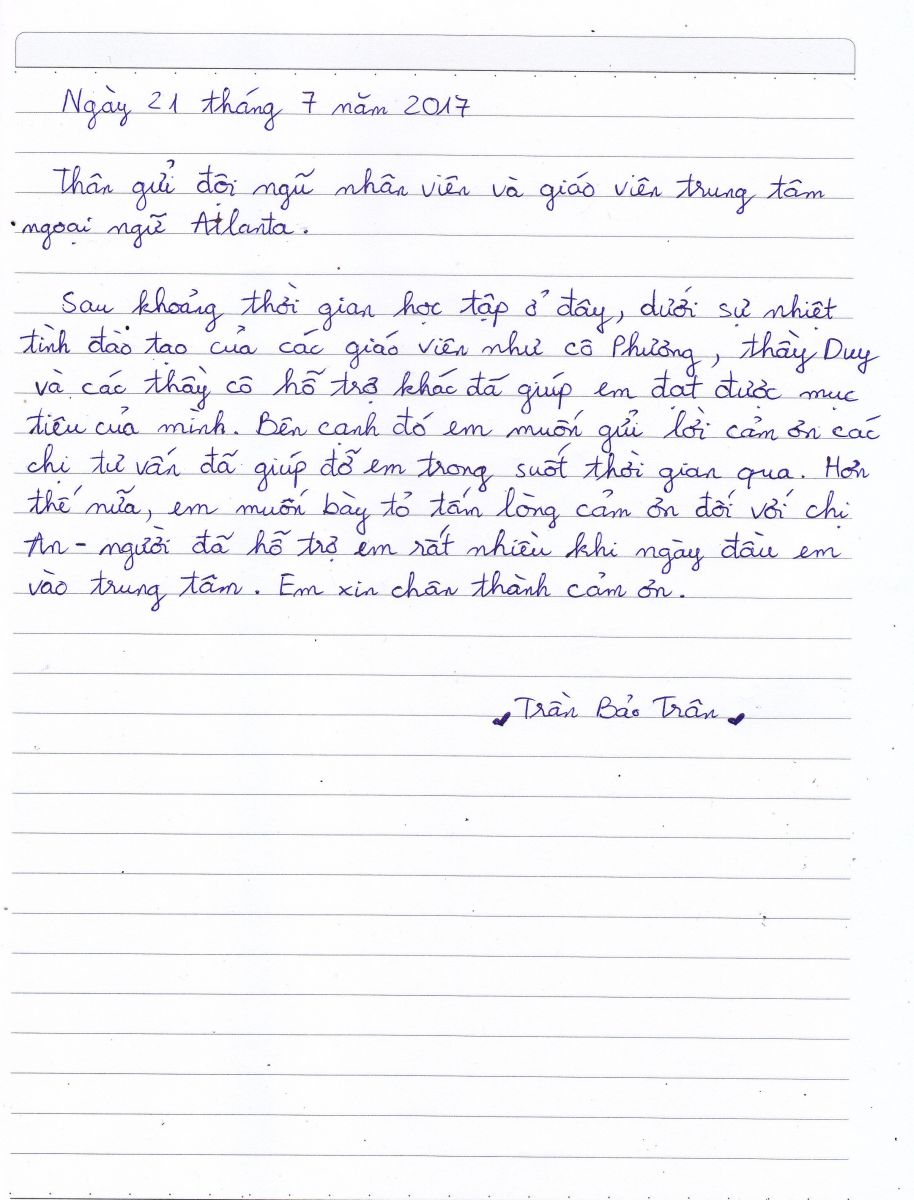 Ngày 21 tháng 7 năm 2017
Thân gửi đội ngũ nhân viên và giáo viên trung tâm
ngoại ngữ Atlanta.
Sau khoảng thời gian học tập ở đây, dưới sự nhiệt
tình đào tạo của các giáo viên như cô Phương, thầy Duy
và các thầy cô hỗ trợ khác đã giúp em đạt được mục
tiêu của mình. Bên cạnh đó em muốn gửi lời cảm ơn các
chị tư vấn đã giúp đỡ em trong suốt thời gian qua. Hơn
thế nữa, em muốn bày tỏ tấm lòng cảm ơn đối với chị
An - người đã hỗ trợ em rất nhiều khi ngày đầu em
vào trung tâm. Em xin chân thành cảm ơn.
Trần Bảo Trân